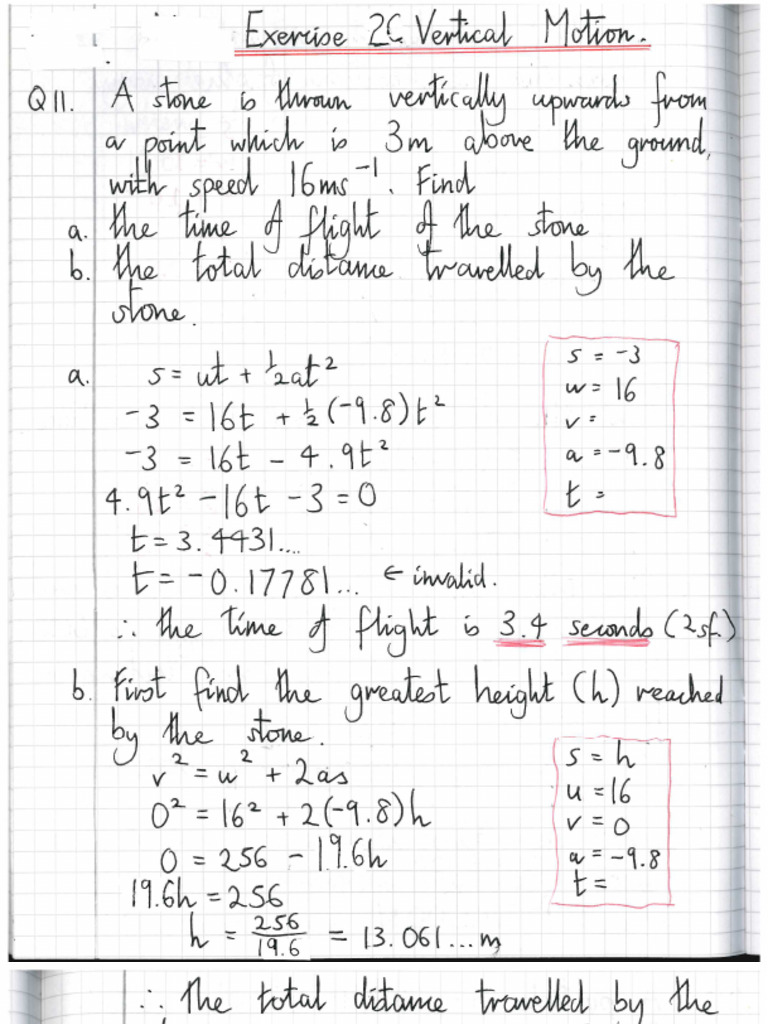 Exercise 2C Vertical Motion.
Q11. A stone is thrown vertically upwards from
a point which is 3m above the ground,
with speed 16ms⁻¹. Find
a. the time of flight of the stone
b. the total distance travelled by the
stone.
a. s = ut + ½at²
-3 = 16t + ½(-9.8)t²
-3 = 16t - 4.9t²
4.9t² - 16t - 3 = 0
t = 3.4431...
t = -0.17781... ← invalid.
∴ the time of flight is 3.4 seconds (2sf.)
s = -3
u = 16
v =
a = -9.8
t =
b. First find the greatest height (h) reached
by the stone.
v² = u² + 2as
0² = 16² + 2(-9.8)h
0 = 256 - 19.6h
19.6h = 256
h = 256/19.6 = 13.061...m
s = h
u = 16
v = 0
a = -9.8
t =
∴ the total distance travelled by the